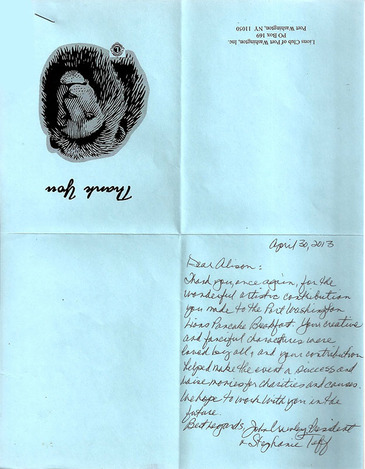 Lions Club of Port Washington, Inc.
PO Box 169
Port Washington, NY 11050
Thank You
April 30, 2013
Dear Alison:
Thank you, once again, for the
wonderful artistic contribution
you made to the Port Washington
Lions Pancake Breakfast. Your creative
and fanciful characters were
loved by all, and your contribution
helped make the event a success and
raise monies for charities and causes.
We hope to work with you in the
future.
Best regards, John President
& Stephanie